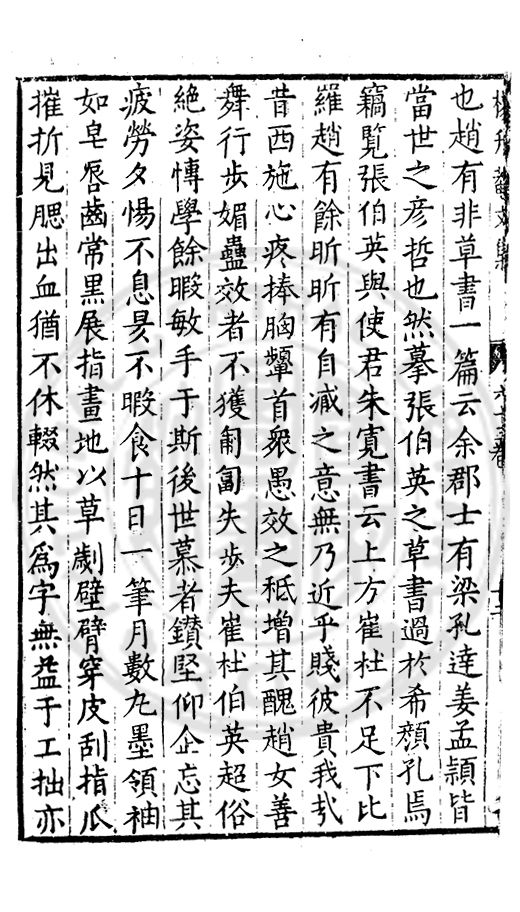 也趙有非草書一篇云余郡士有梁孔達姜孟頴皆
當世之彦哲也然摹張伯英之草書過於希顔孔焉
竊覧張伯英與使君朱寛書云上方崔杜不足下比
羅趙有餘昕昕有自减之意無乃近乎賤彼貴我㢤
昔西施心疼捧胸顰首衆愚效之秪增其醜趙女善
舞行歩媚蠱效者不獲匍匐失歩夫崔杜伯英超俗
絶姿慱學餘暇敏手于斯後世慕者鑚堅仰企忘其
疲勞夕惕不息昃不暇食十日一筆月數丸墨領袖
如皂唇齒常黒展指畫地以草劌壁臂穿皮刮指爪
摧折見腮出血猶不休輟然其爲字無益于工拙亦